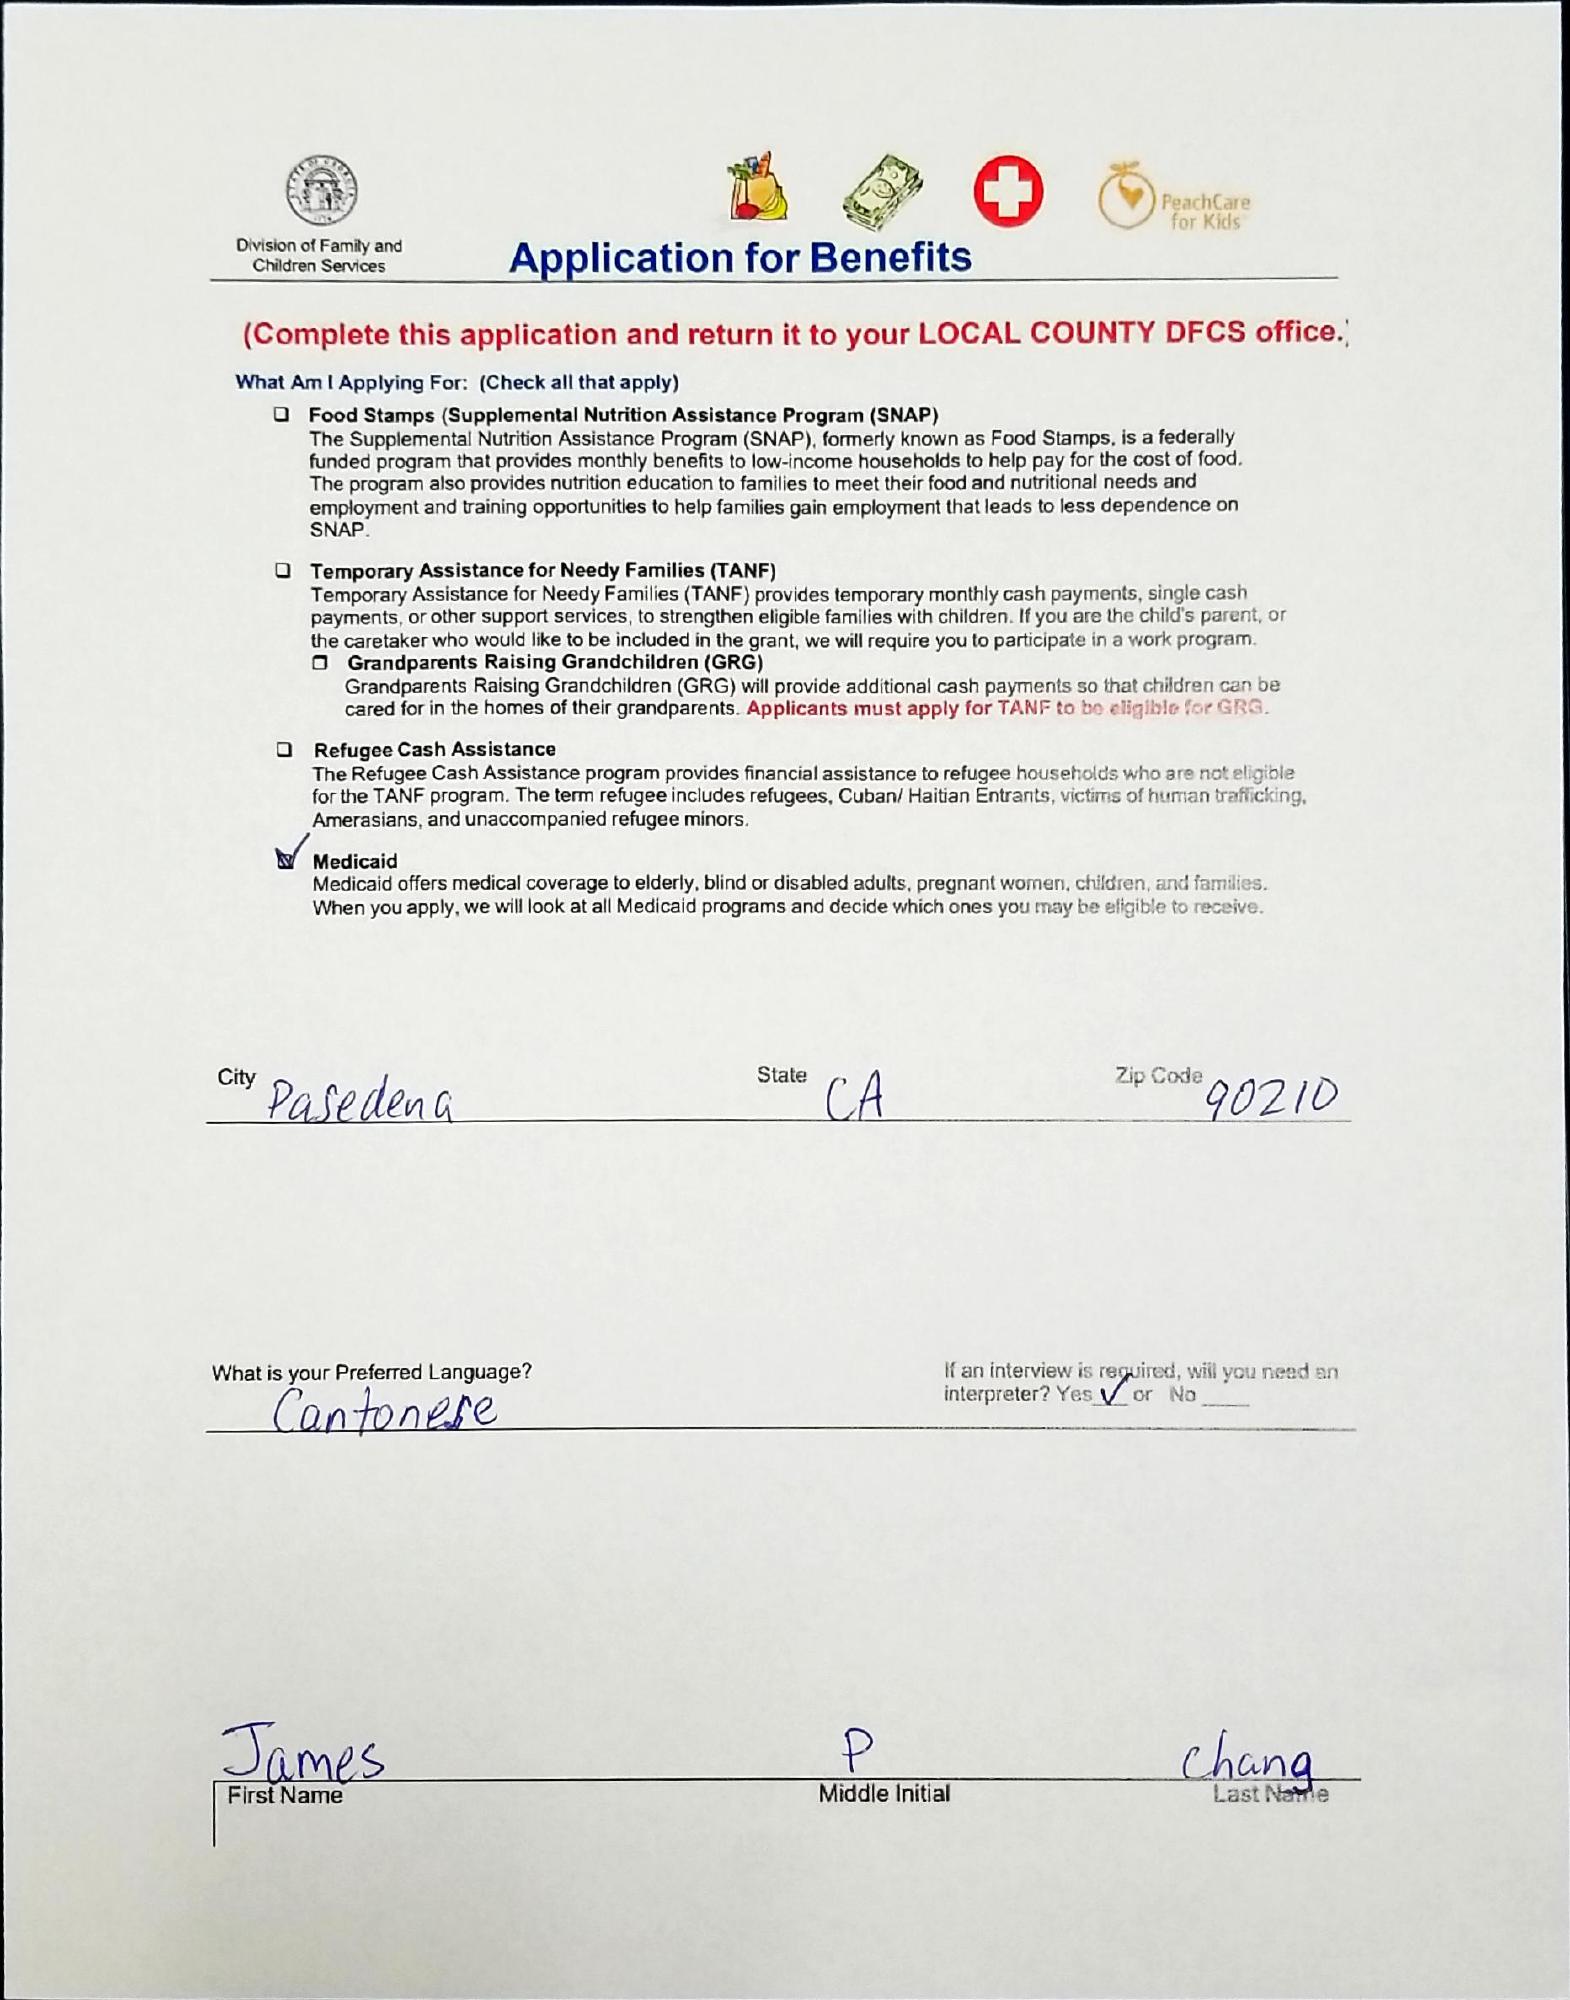 STATE OF GEORGIA
1776
PeachCare
for Kids
Division of Family and
Children Services
Application for Benefits
(Complete this application and return it to your LOCAL COUNTY DFCS office.)
What Am I Applying For: (Check all that apply)
❑ Food Stamps (Supplemental Nutrition Assistance Program (SNAP)
The Supplemental Nutrition Assistance Program (SNAP), formerly known as Food Stamps, is a federally
funded program that provides monthly benefits to low-income households to help pay for the cost of food.
The program also provides nutrition education to families to meet their food and nutritional needs and
employment and training opportunities to help families gain employment that leads to less dependence on
SNAP.
❑ Temporary Assistance for Needy Families (TANF)
Temporary Assistance for Needy Families (TANF) provides temporary monthly cash payments, single cash
payments, or other support services, to strengthen eligible families with children. If you are the child's parent, or
the caretaker who would like to be included in the grant, we will require you to participate in a work program.
❑ Grandparents Raising Grandchildren (GRG)
Grandparents Raising Grandchildren (GRG) will provide additional cash payments so that children can be
cared for in the homes of their grandparents. Applicants must apply for TANF to be eligible for GRG.
❑ Refugee Cash Assistance
The Refugee Cash Assistance program provides financial assistance to refugee households who are not eligible
for the TANF program. The term refugee includes refugees, Cuban/ Haitian Entrants, victims of human trafficking,
Amerasians, and unaccompanied refugee minors.
☑ Medicaid
Medicaid offers medical coverage to elderly, blind or disabled adults, pregnant women, children, and families.
When you apply, we will look at all Medicaid programs and decide which ones you may be eligible to receive.
City Pasedena State CA Zip Code 90210
What is your Preferred Language? If an interview is required, will you need an
Cantonese interpreter? Yes ✓ or No ____
James P Chang
First Name Middle Initial Last Name